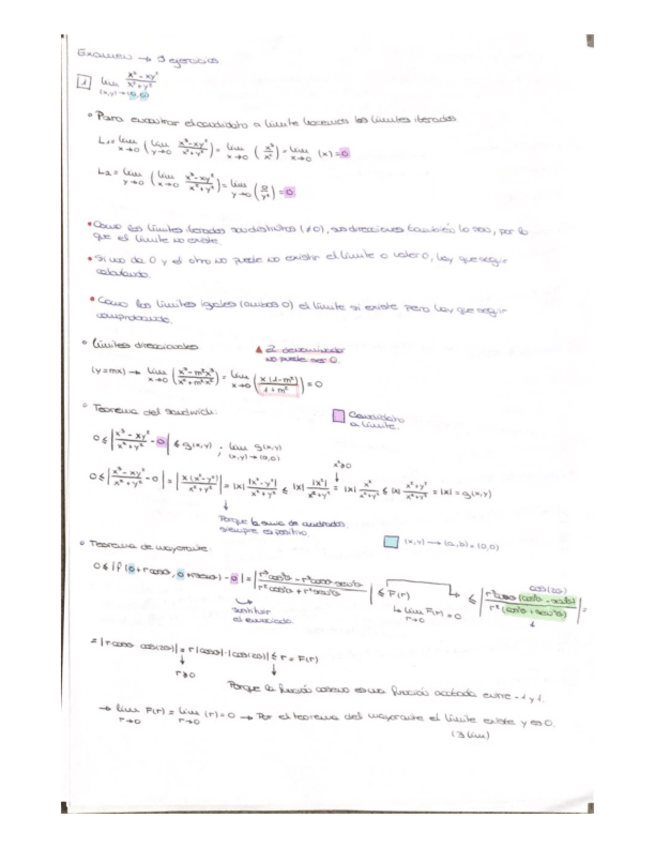 Examen → 3 ejercicios
1 lim (x,y)→(0,0) x³-xy²/x²+y²
• Para encontrar el candidato a límite hacemos los límites iterados.
L₁ = lim x→0 (lim y→0 x³-xy²/x²+y²) = lim x→0 (x³/x²) = lim x→0 (x) = 0
L₂ = lim y→0 (lim x→0 x³-xy²/x²+y²) = lim y→0 (0/y²) = 0
• Como los límites iterados son distintos (≠0), sus direcciones también lo son, por lo
que el límite no existe.
• Si uno da 0 y el otro no puede no existir el límite o valer 0, hay que seguir
calculando.
• Como los límites iguales (ambos 0) el límite si existe pero hay que seguir
comprobando.
• Límites direccionales
▲ El denominador
no puede ser 0.
(y=mx) → lim x→0 (x³-m²x³/x²+m²x²) = lim x→0 (x(1-m²)/1+m²) = 0
• Teorema del sandwich:
Candidato
a límite.
0 ≤ |x³-xy²/x²+y² - 0| ≤ g(x,y) ; lim (x,y)→(0,0) g(x,y)
x²≥0
0 ≤ |x³-xy²/x²+y² - 0| = |x(x²-y²)/x²+y²| = |x| |x²-y²|/x²+y² ≤ |x| |x²|/x²+y² = |x| x²/x²+y² ≤ |x| x²+y²/x²+y² = |x| = g(x,y)
Porque la suma de cuadrados
siempre es positivo.
• Teorema de mayorante:
(x,y) → (a,b) = (0,0)
cos(2θ)
0 ≤ |f(0+r cosθ, 0+r senθ) - 0| = |r³cos³θ - r³cosθ sen²θ / r²cos²θ + r²sen²θ| ≤ F(r) ≤ |r³cosθ (cos²θ - sen²θ) / r²(cos²θ + sen²θ)| =
lim r→0 F(r) = 0
1
sustituir
el enunciado
= |r cosθ · cos(2θ)| = r |cosθ| · |cos(2θ)| ≤ r = F(r)
r≥0
Porque la función coseno es una función acotada entre -1 y 1.
→ lim r→0 F(r) = lim r→0 (r) = 0 → Por el teorema del mayorante el límite existe y es 0.
(∃ lim)